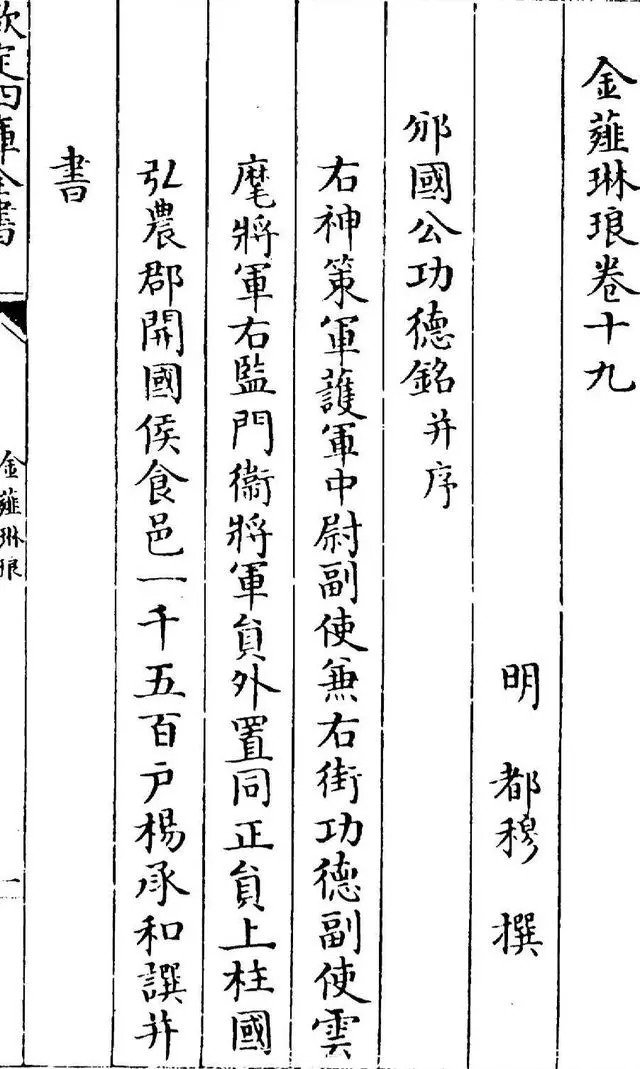 金薤琳琅卷十九
明 都穆 撰
邠國公功德銘并序
右神策軍護軍中尉副使兼右街功德副使雲
麾將軍右監門衞將軍員外置同正員上柱國
弘農郡開國侯食邑一千五百户楊承和譔并
書
欽定四庫全書
金薤琳琅
一